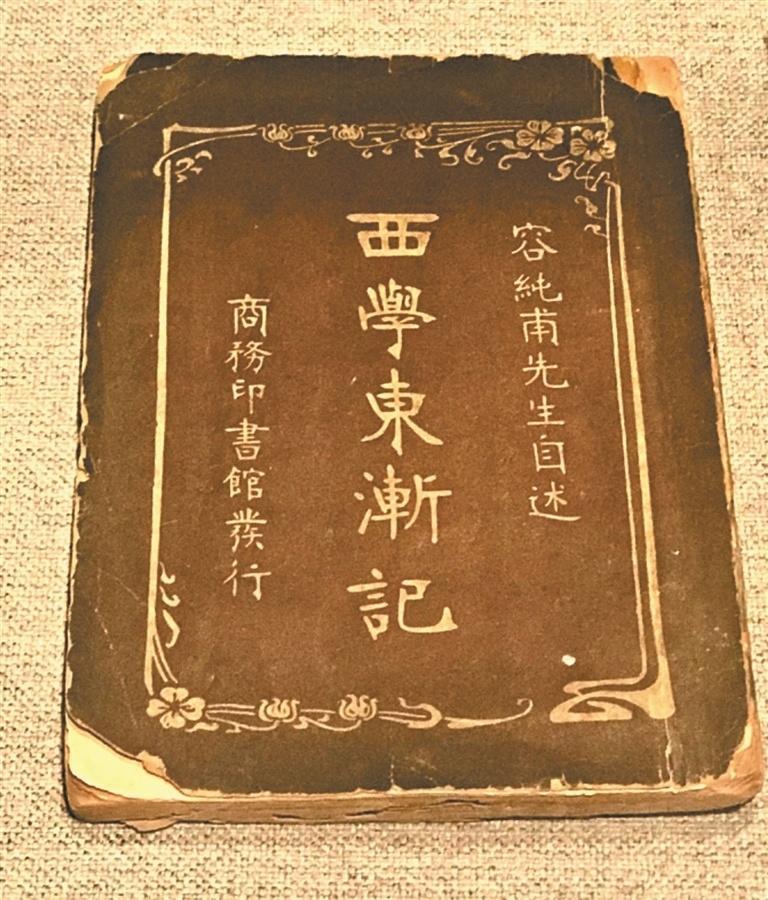 容純甫先生自述
西學東漸記
商務印書館發行